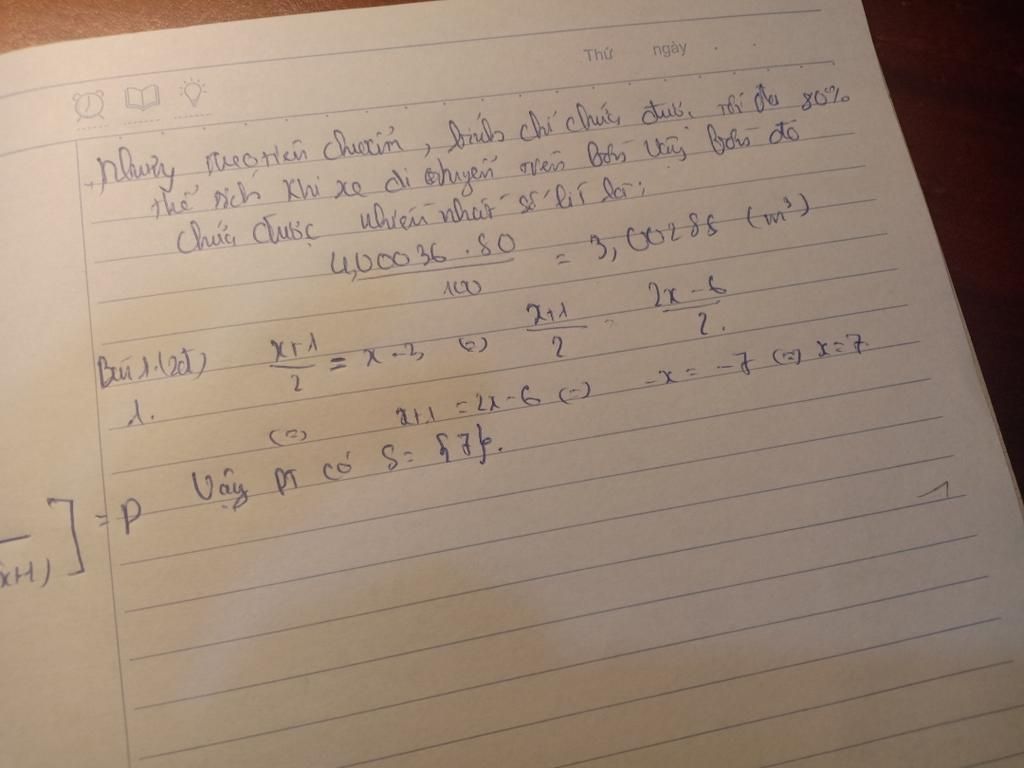 Thứ ngày
Nhưng theo tiêu chuẩn, bình chỉ chứa được tối đa 80%
thể tích khi xe di chuyển nên bồn Vậy bồn đó
chứa được nhiên nhất số lít là:
4,00036 . 80 / 100 = 3,00288 (m³)
Bài 1: (2đ) x+1 / 2 = x - 3 (=) x+1 / 2 = 2x - 6 / 2.
1.
(=) x+1 = 2x - 6 (=) -x = -7 (=) x = 7.
Vậy pt có S = {7}.
] = P
x+1)